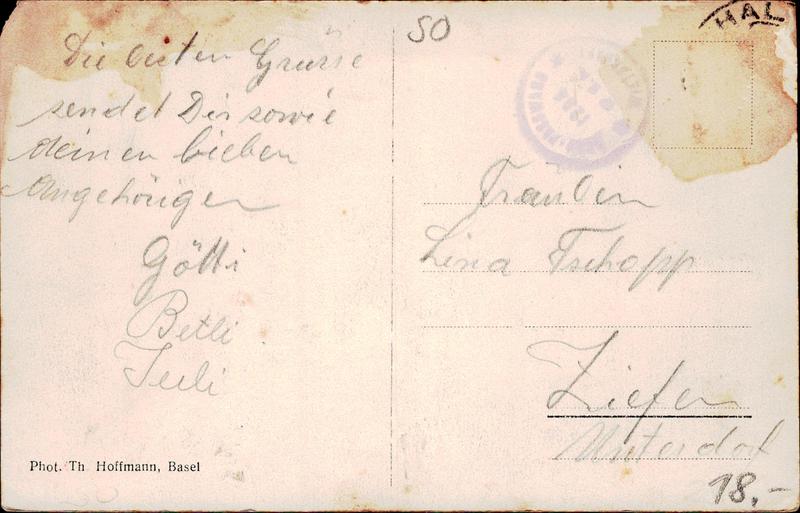 50
HAL
Die besten Grüsse
sendet Dir sowie
deinen lieben
Angehörigen
Götti
Betli
Fräulein
Lina Tschopp
Ziefen
Unterdorf
Phot. Th Hoffmann, Basel
18.-